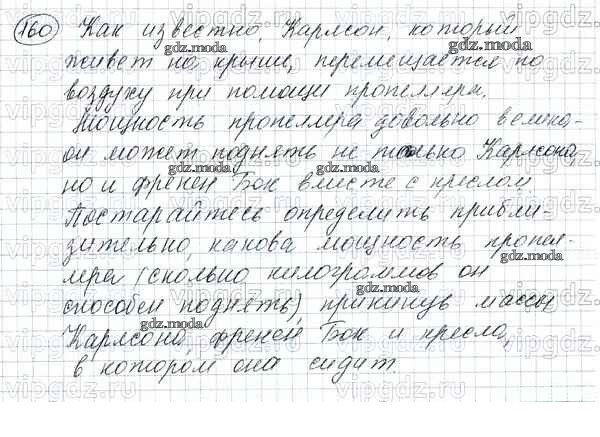 160 Как известно, Карлсон, который
живет на крыше, перемещается по
воздуху при помощи пропеллера.
Мощность пропеллера довольно велика-
он может поднять не только Карлсона,
но и фрекен Бок вместе с креслом
Постарайтесь определить прибли-
зительно, какова мощность пропел-
лера (сколько килограммов он
способен поднять), прикинув массы
Карлсона, фрекен Бок и кресла,
в котором она сидит.
gdz.moda
vipgdz.ru